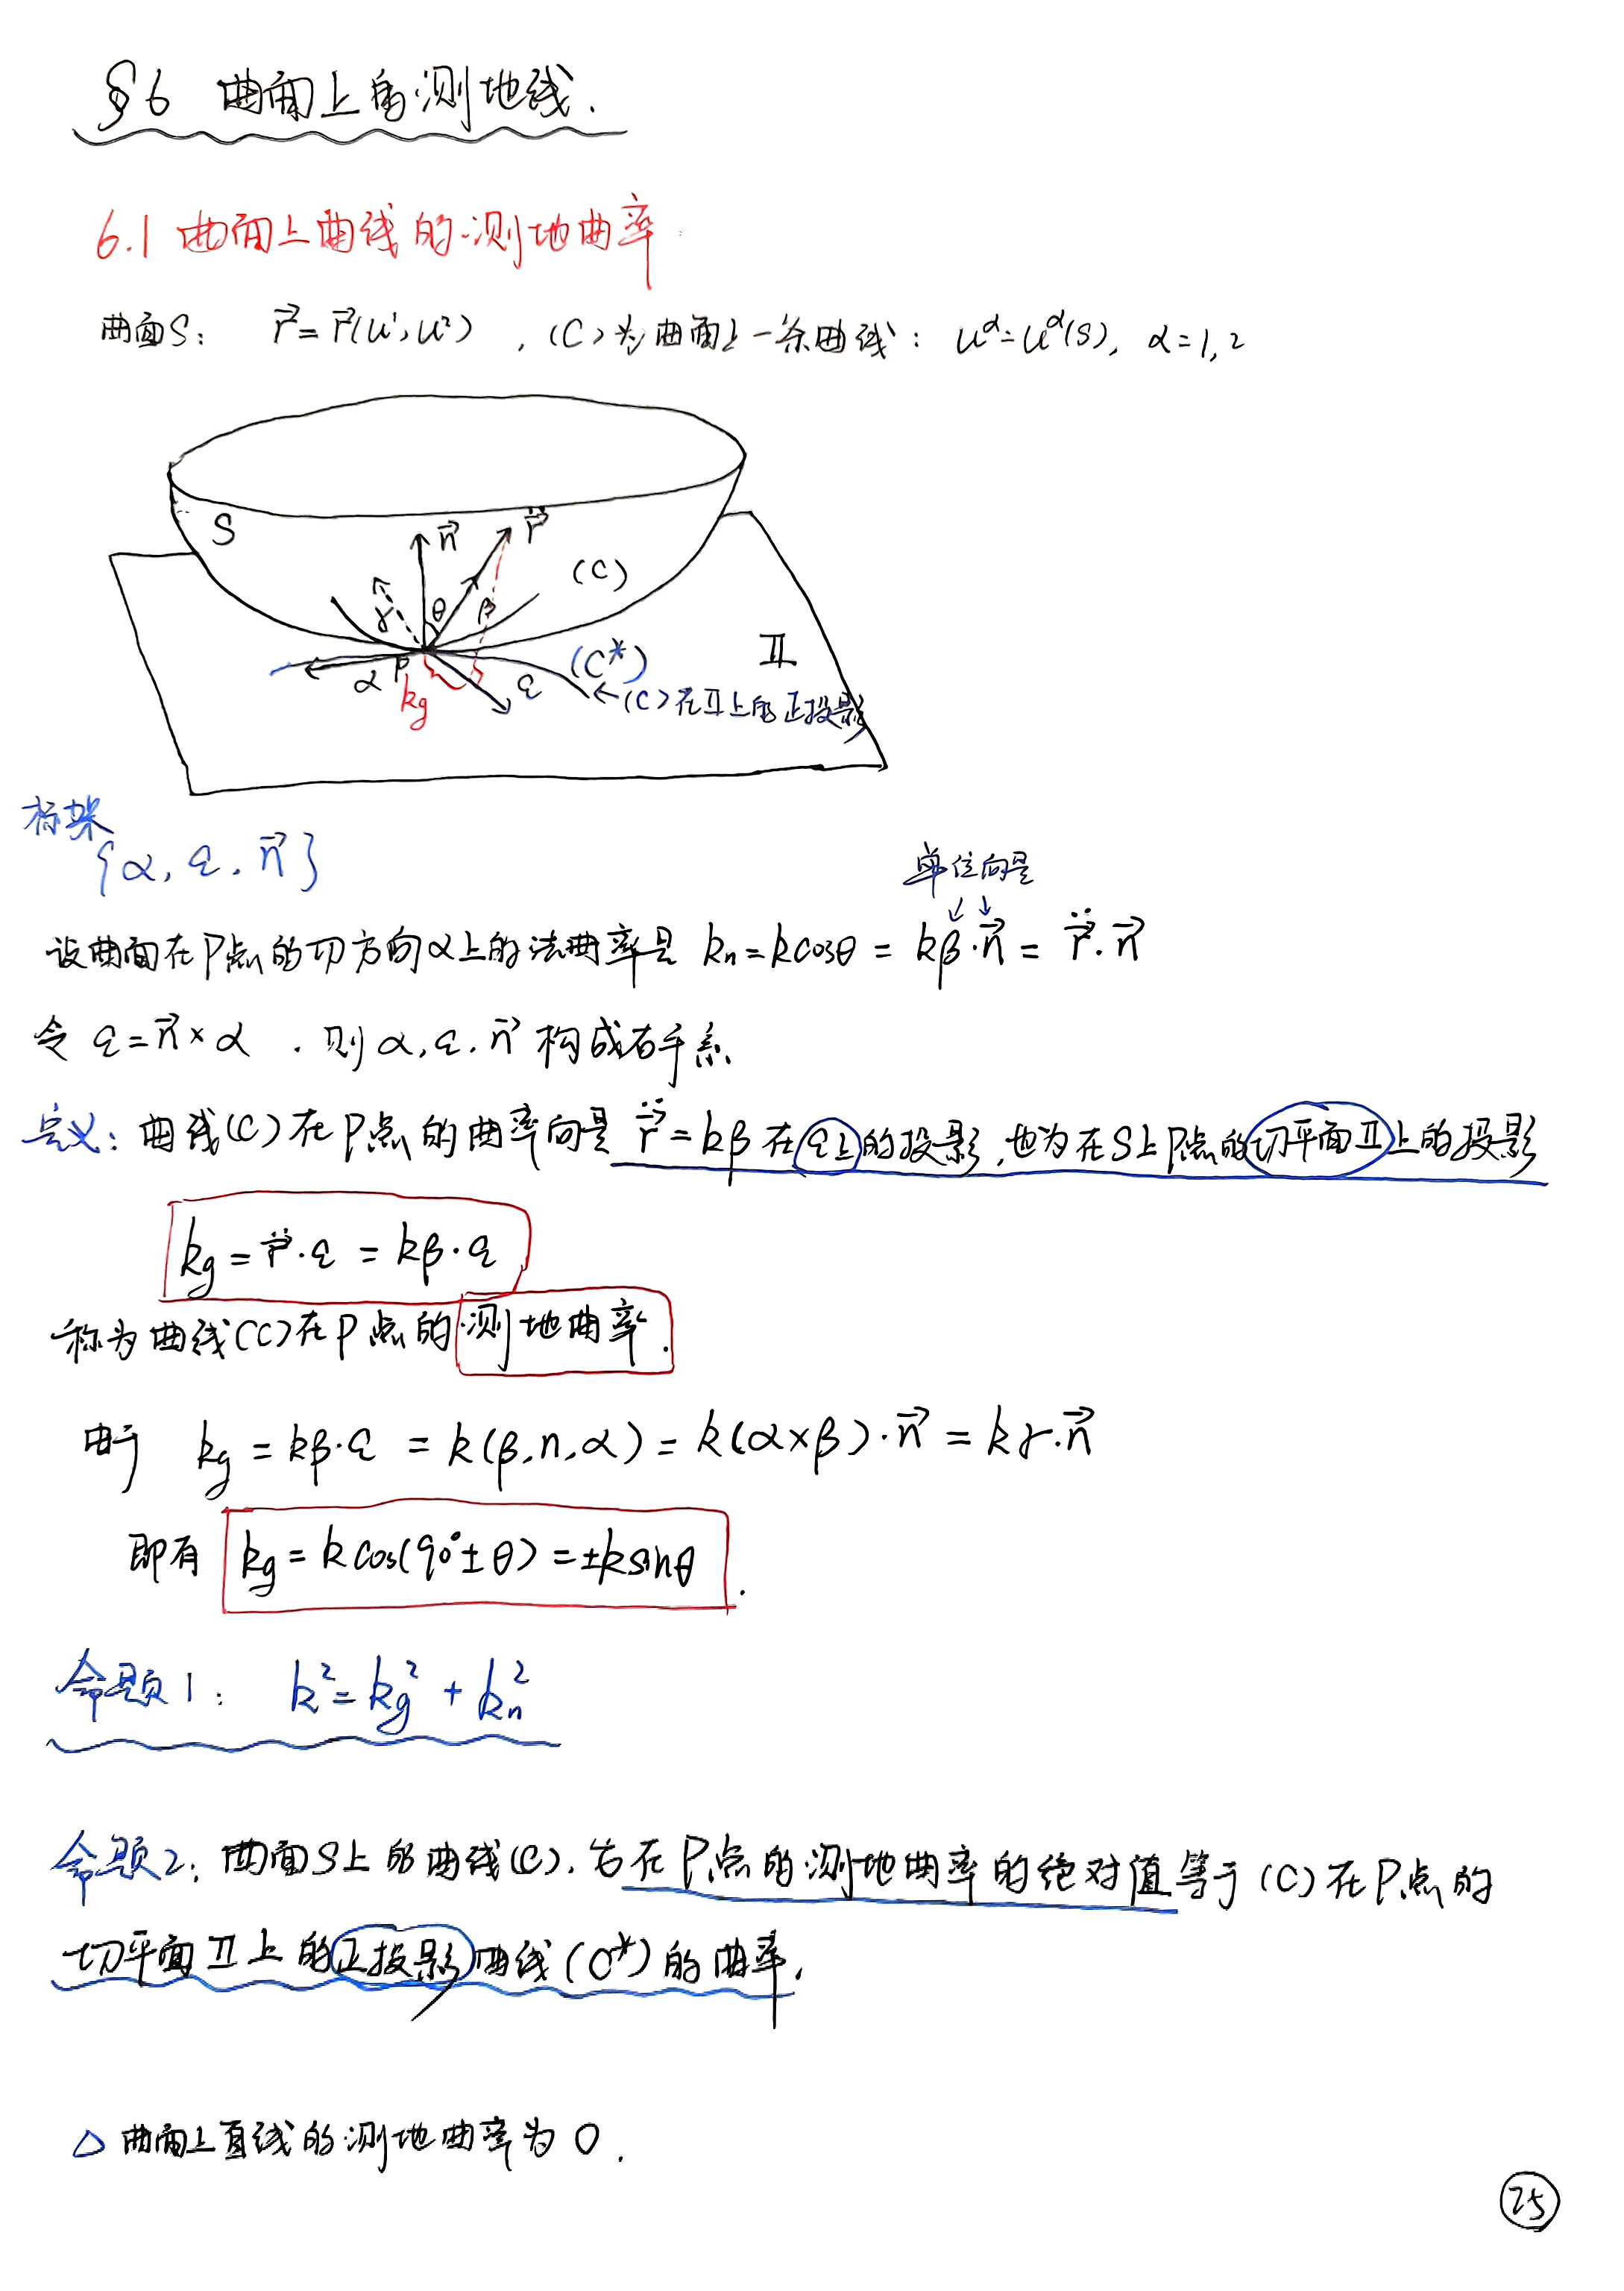 §6 曲面上的测地线.
6.1 曲面上曲线的测地曲率
曲面S: r⃗=r⃗(u¹,u²) ,(C)为曲面上一条曲线: u^α=u^α(s), α=1,2
S
n⃗
r̈⃗
(C)
γ
θ
β
α
P
kg
ε
(C*)
Π
←(C)在Π上的正投影
标架
{α, ε, n⃗}
单位向量
↙ ↓
设曲面在P点的切方向α上的法曲率是 kn=kcosθ = kβ·n⃗ = r̈⃗·n⃗
令 ε=n⃗×α . 则α,ε,n⃗构成右手系.
定义: 曲线(C)在P点的曲率向量 r̈⃗=kβ在ε上的投影,也为在S上P点的切平面Π上的投影
kg = r̈⃗·ε = kβ·ε
称为曲线(C)在P点的测地曲率.
由于 kg = kβ·ε = k(β,n,α) = k(α×β)·n⃗ = kγ·n⃗
即有 kg = k cos(90°±θ) = ±ksinθ.
命题1: k²=kg²+kn²
命题2: 曲面S上的曲线(C),它在P点的测地曲率的绝对值等于(C)在P点的
切平面Π上的正投影曲线(C*)的曲率.
△ 曲面上直线的测地曲率为0.
25